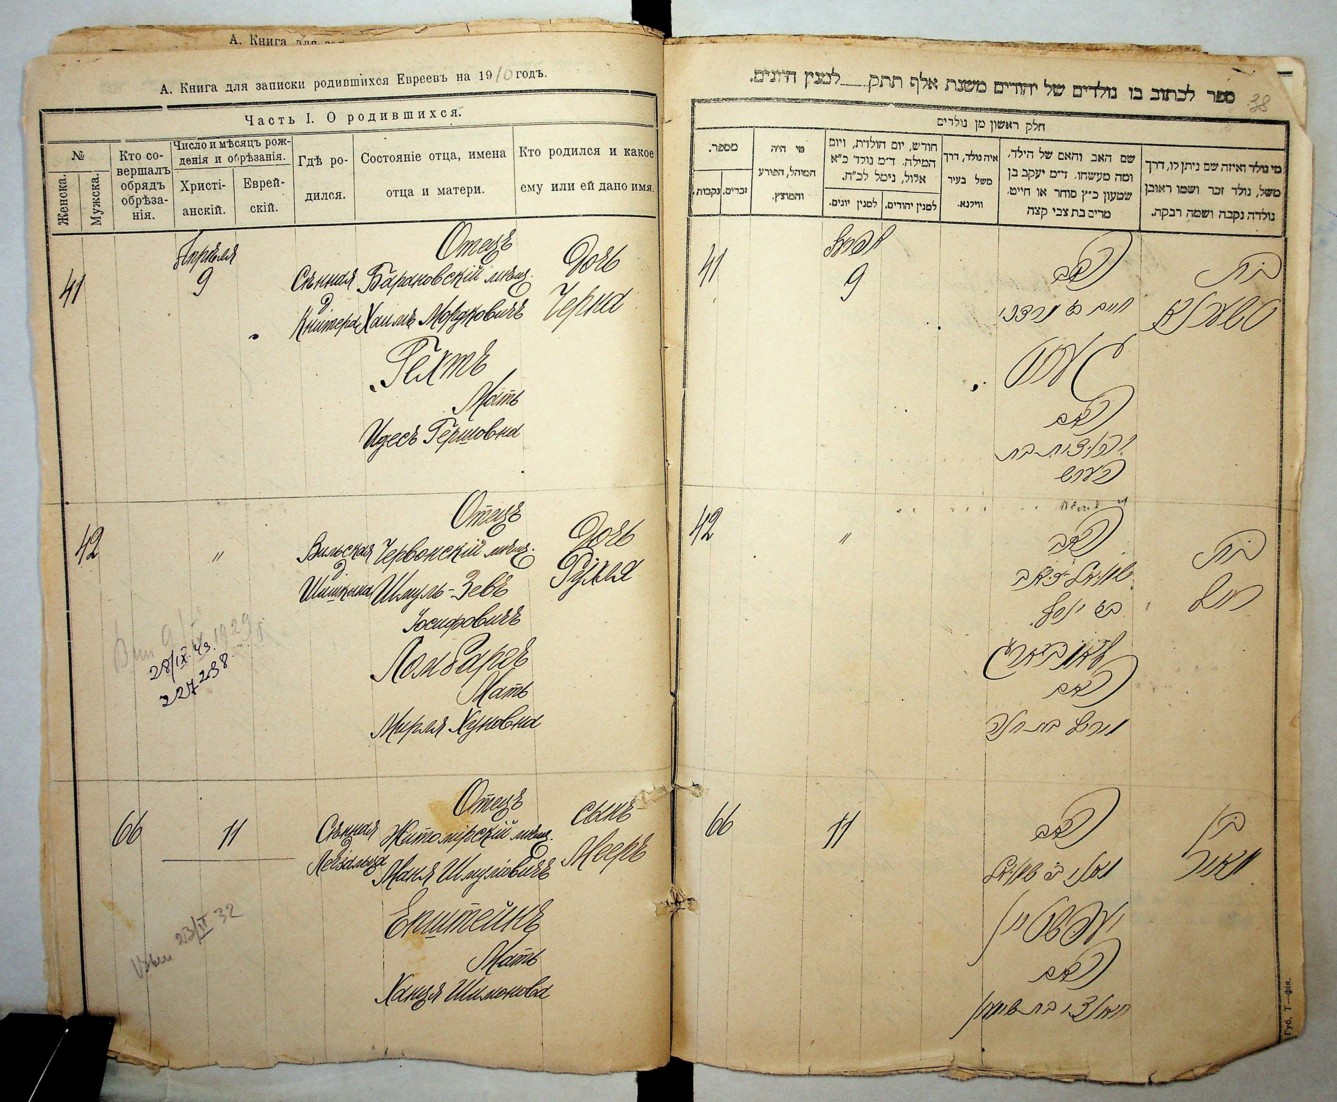 А. Книга для
А. Книга для записки родившихся Евреевъ на 1910 годъ.
Часть I. О родившихся.
№
Женска.
Мужска.
Кто со-
вершалъ
обрядъ
обрѣза-
нія.
Число и мѣсяцъ рож-
денія и обрѣзанія.
Христі-
анскій.
Еврей-
скій.
Гдѣ ро-
дился.
Состояніе отца, имена
отца и матери.
Кто родился и какое
ему или ей дано имя.
41
Апрѣля
9
Сѣнная
д
Отецъ
Барановскій мѣщ.
Хаимъ Мордховичъ
Гехтъ
Мать
Идесъ Гершовна
Дочь
Черна
42
"
Вильская
д
Шишкина
Отецъ
Червонскій мѣщ.
Шмуль-Зевъ
Іосифовичъ
Ломбардъ
Мать
Мирля Хуновна
Дочь
Рухля
28/IX 43.
227238.
66
11
Сѣнная
д
Отецъ
Житомірскій мѣщ.
Маня Шмуйловичъ
Епштейнъ
Мать
Ханця Шимонова
сынъ
Мееръ
23/VI 32
ספר לכתוב בו נולדים של יהודים משנת אלף תתק___למנין היונים.
38
חלק ראשון מן נולדים
מספר.
נקבות.
זכרים.
מי היה
המוהל, הפורע
והמוצץ.
חודש, יום הולדת, ויום
המילה. ד״מ נולד כ״א
אלול, נימל לכ״ח.
למנין יונים.
למנין יהודים.
איה נולד, דרך
משל בעיר
ווילנא.
שם האב והאם של הילד,
ומה מעשהו. ד״מ יעקב בן
שמעון כ״ץ סוחר או חייט.
מרים בת צבי קצה
מי נולד ואיזה שם ניתן לו, דרך
משל, נולד זכר ושמו ראובן
נולדה נקבה ושמה רבקה.
41
אפריל
9
האב
חיים ב״ מרדכי
העכט
האם
בת
הערש
בת
טשערנא
42
"
האב
שמואל זאב
ב״ יוסף
לאמבארד
האם
מירל בת חנא
בת
רחל
66
11
האב
מאני ב״ שמואל
עפשטיין
האם
בת שמעון
בן
מאיר
Губ. Т—фія.